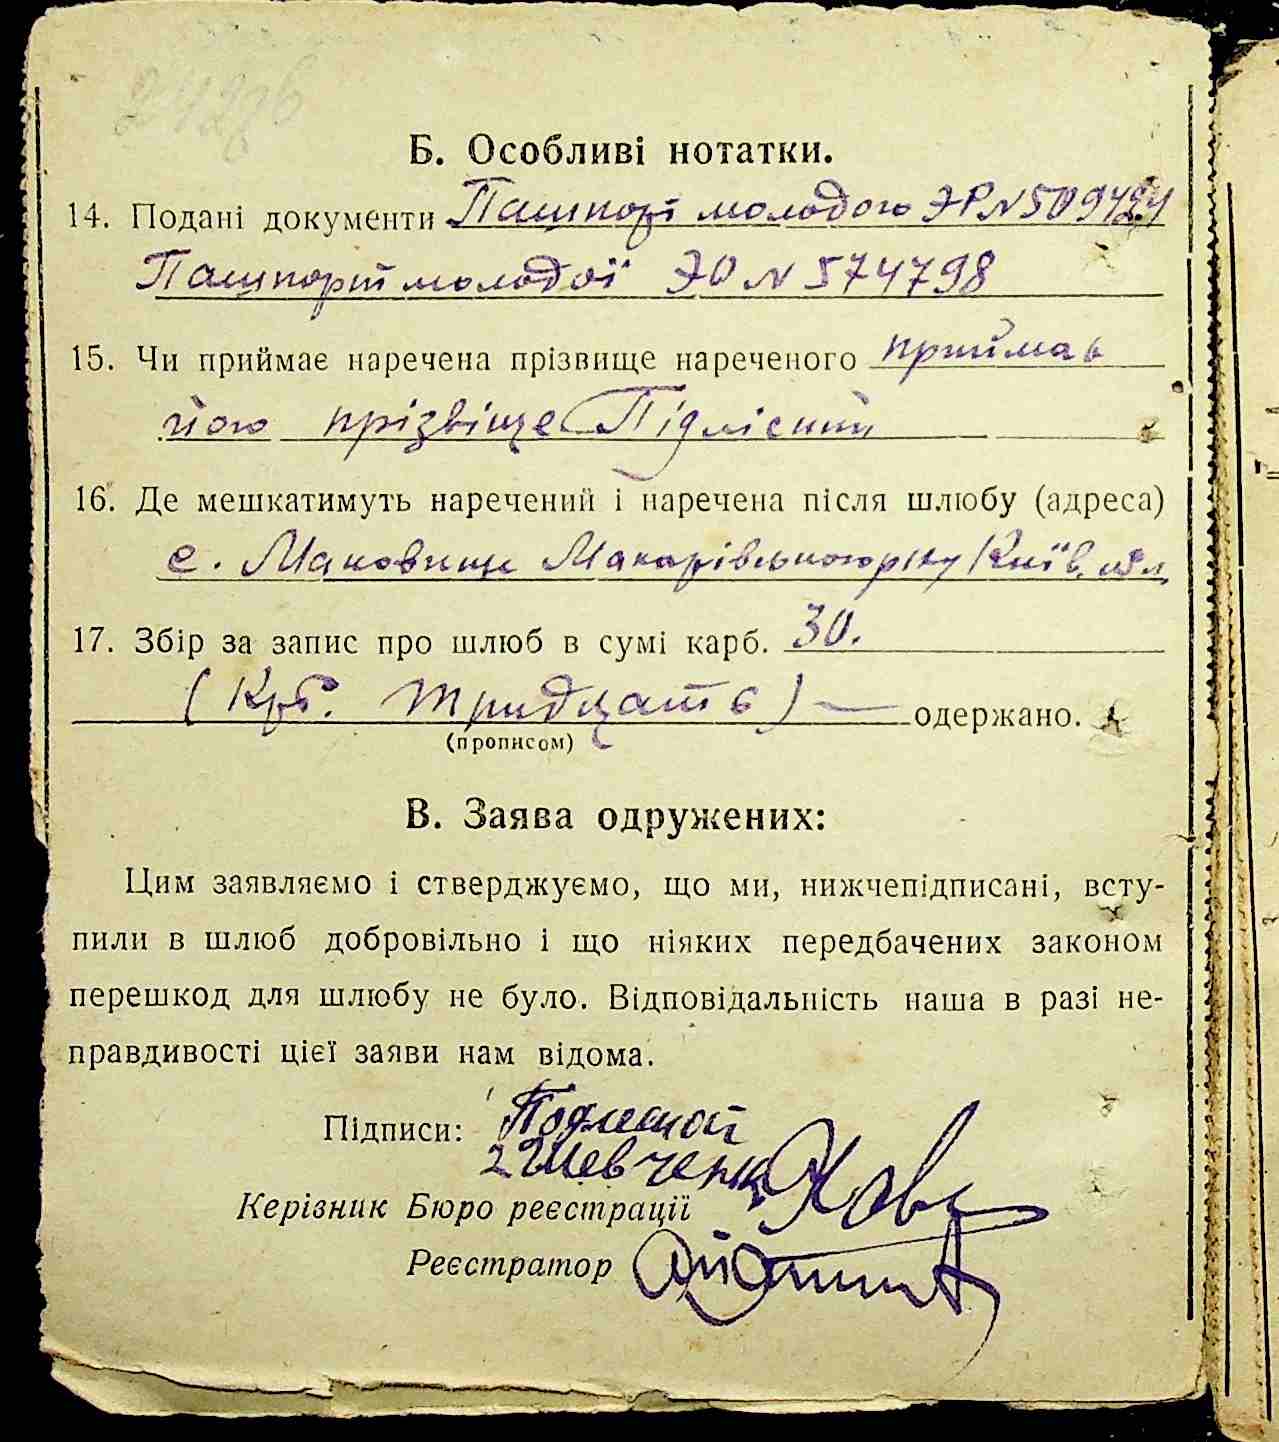 Б. Особливі нотатки.
14. Подані документи Пашпорт молодого ЭР N 509424
Пашпорт молодої ЭО N 574798
15. Чи приймає наречена прізвище нареченого приймає
його прізвіще Підлісний
16. Де мешкатимуть наречений і наречена після шлюбу (адреса)
с. Маковище Макарівського р-ну Київ. обл.
17. Збір за запис про шлюб в сумі карб. 30.
(Крб. тридцать) — одержано.
(прописом)
В. Заява одружених:
Цим заявляємо і стверджуємо, що ми, нижчепідписані, всту-
пили в шлюб добровільно і що ніяких передбачених законом
перешкод для шлюбу не було. Відповідальність наша в разі не-
правдивості цієї заяви нам відома.
Підписи: Подлесной
2 Шевченко
Керівник Бюро реєстрації
Реєстратор